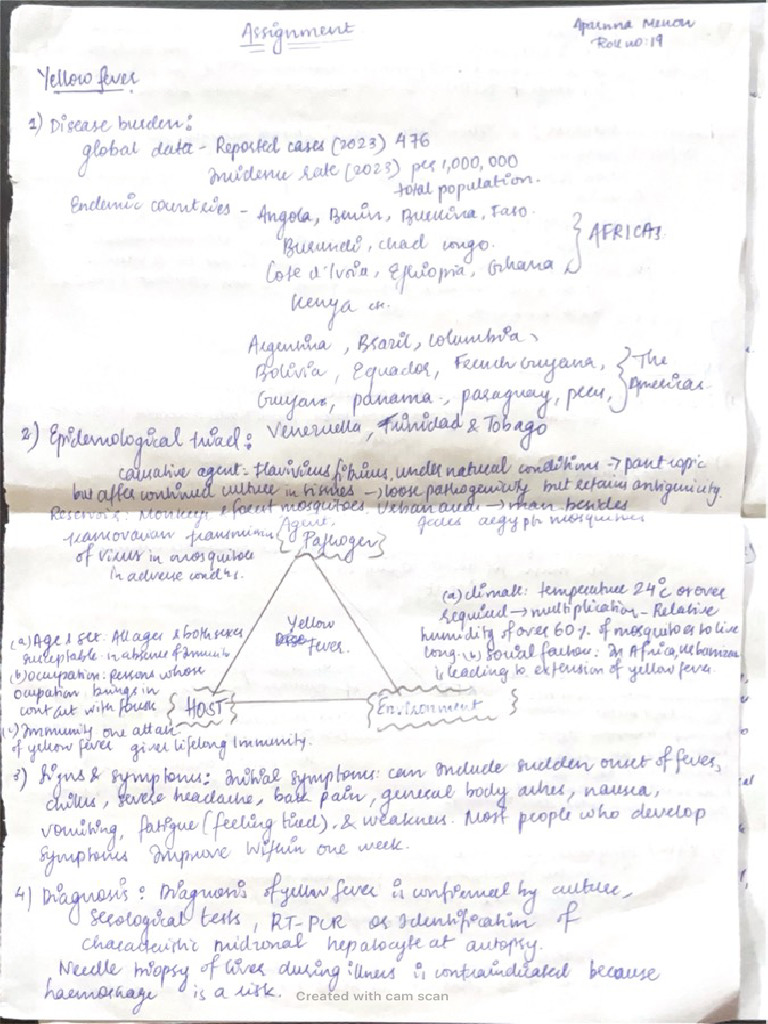 Assignment
Aparnna Menon
Roll no: 19
Yellow fever
1) Disease burden:
global data - Reported cases (2023) 476
Incidence rate (2023) per 1,000,000
total population.
Endemic countries - Angola, Benin, Burkina, Faso.
Burundi, chad congo.
Cote d'Ivoia, Ethiopia, Ghana
AFRICA
Kenya
Argentina, Brazil, Columbia,
Bolivia, Equador, French Guyana,
Guyana, panama, paraguay, peru,
The
Americas
Venezuella, Trinidad & Tobago
2) Epidemological triad:
causative agent - Flavivirus fibrius, under natural conditions → pantropic
but after continued culture in tissues → loose pathogenicity but retains antigenicity.
Reservoir: Monkeys & forest mosquitoes. Urban area → man besides
aedes aegypti mosquitoes
transovarian transmission
of virus in mosquitoes
In adverse condns.
Agent
Pathogen
Yellow
fever.
HOST
Environment
(a) Age & sex: All ages & both sexes
susceptable in absence of immunity
(b) ocupation: persons whose
ocupation brings in
contact with forest
(c) Immunity one attack
of yellow fever gives lifelong Immunity.
(a) climate: temperature 24°c or over
required → multiplication - Relative
humidity of over 60% of mosquitoes to live
long. (b) social factors: In Africa, urbanisation
is leading to extension of yellow fever.
3) Signs & symptoms: Initial symptoms: can Include sudden onset of fever,
chills, severe headache, back pain, general body aches, nausea,
vomiting, fatigue (feeling tired) & weakness. Most people who develop
symptoms Improve within one week.
4) Diagnosis: Diagnosis of yellow fever is confirmed by culture,
serological tests, RT-PCR or Identification of
characteristic midzonal hepatocyte at autopsy.
Needle biopsy of liver during illness is contraindicated because
haemorrhage is a risk.
Created with cam scan